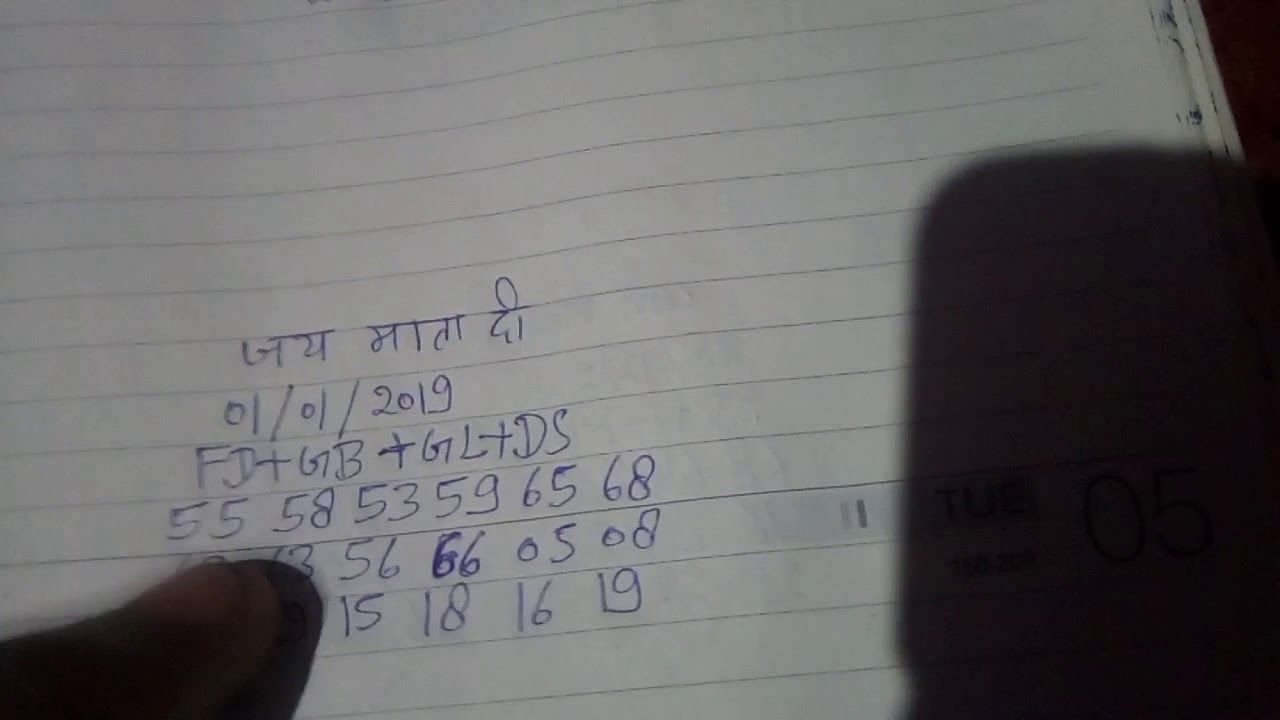 जय माता दी
01/01/2019
FD+GB+GL+DS
55 58 53 59 65 68
56 66 05 08
15 18 16 19
TUE 05